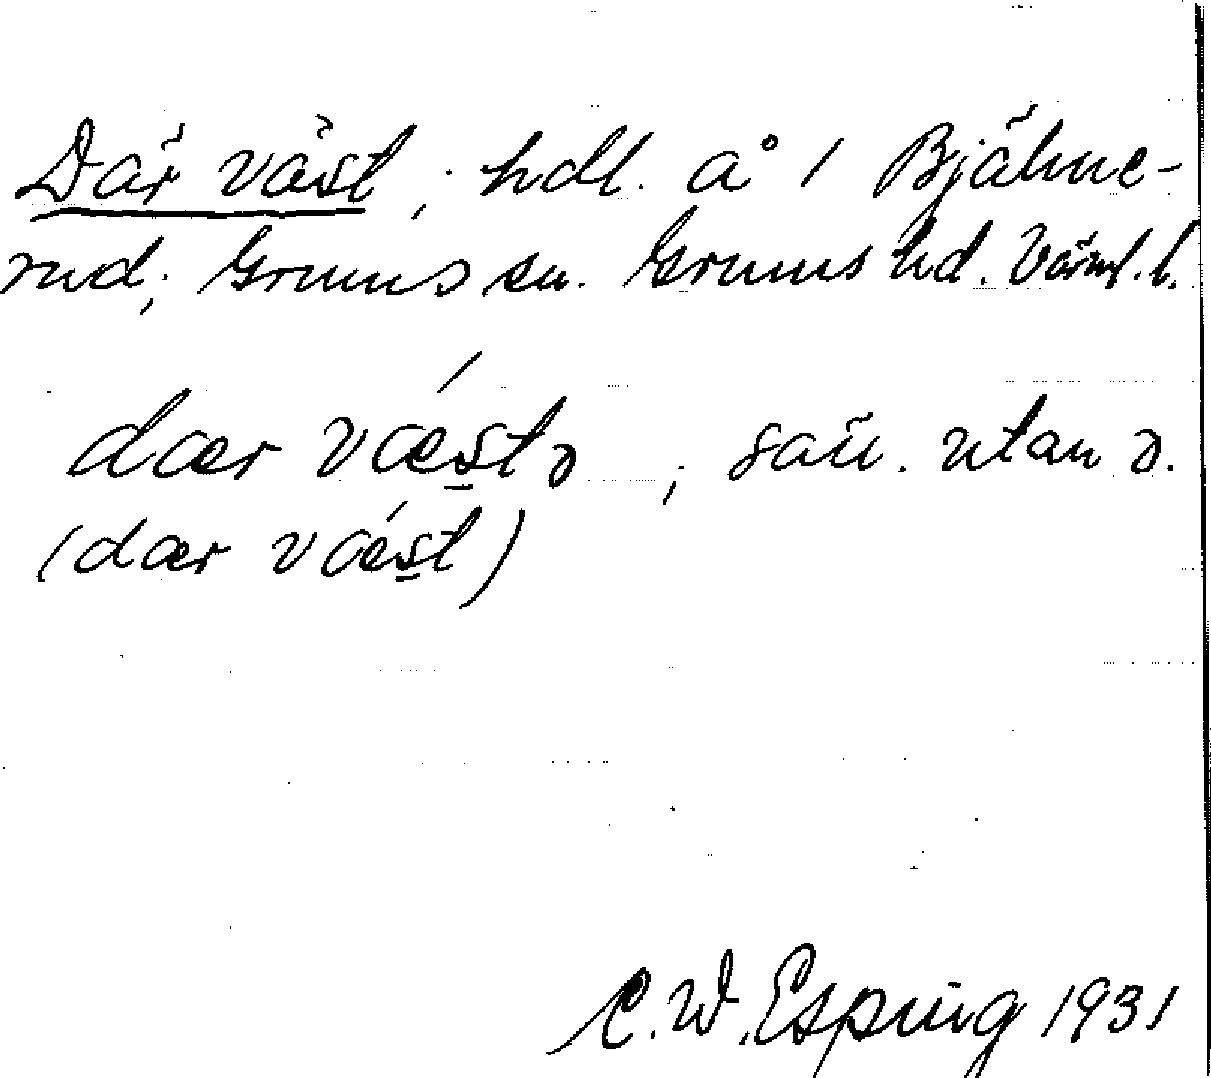 Där väst; hdl. å 1 Bjälve-
rud; Grums sn. Grums hd. Värml. l.
dær væ´stə ; sällan utan ə.
(dær væ´st)
C. W. Esping 1931